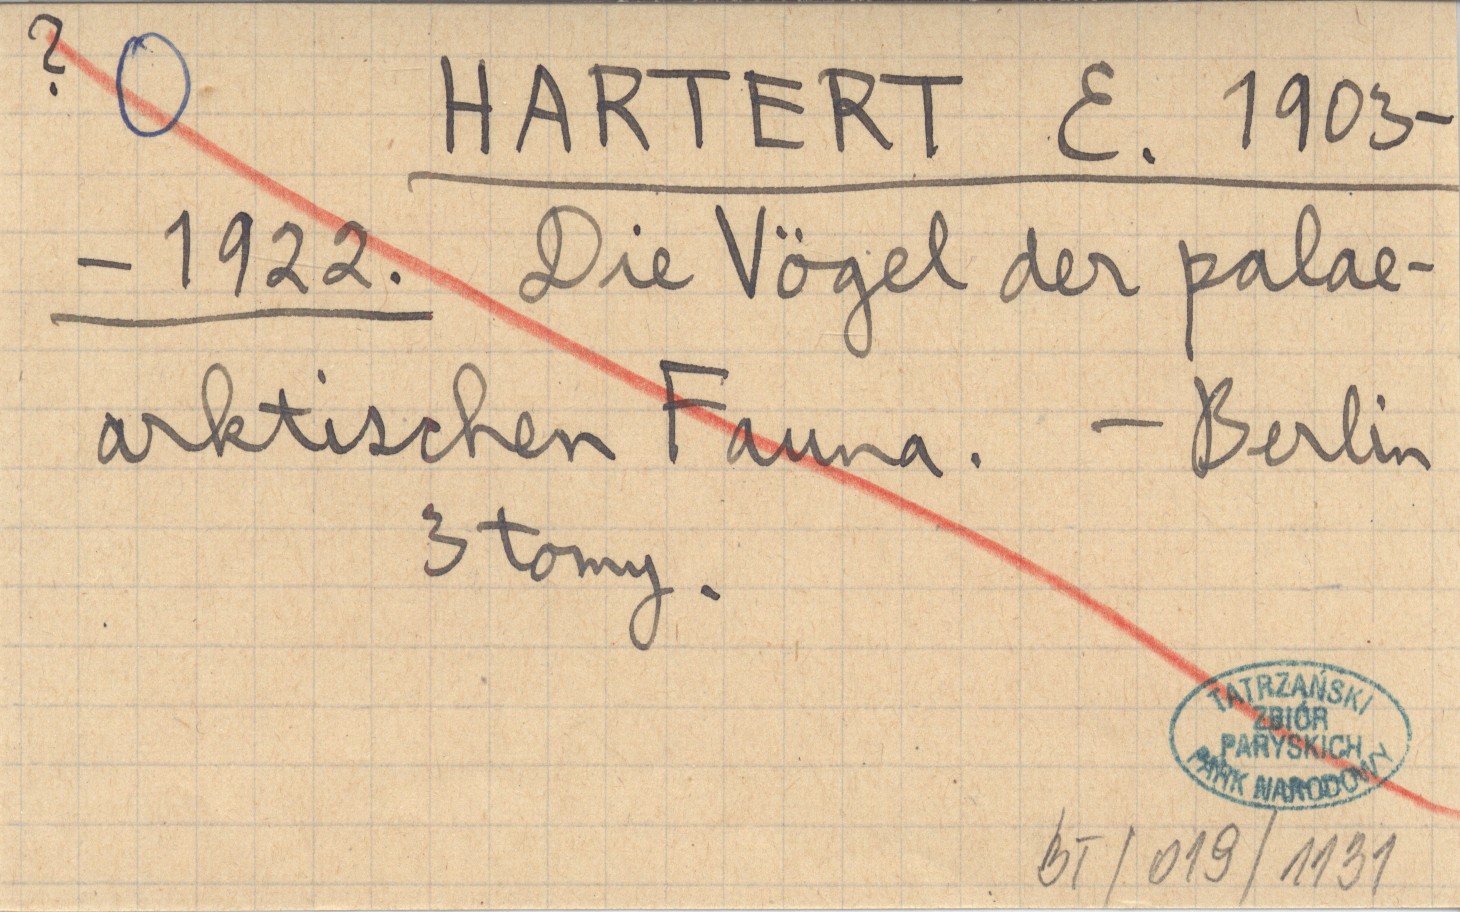 ? O HARTERT E. 1903-
- 1922. Die Vögel der palae-
arktischen Fauna. - Berlin
3 tomy.
TATRZAŃSKI
ZBIÓR
PARYSKICH
PARK NARODOWY
BT/019/1131